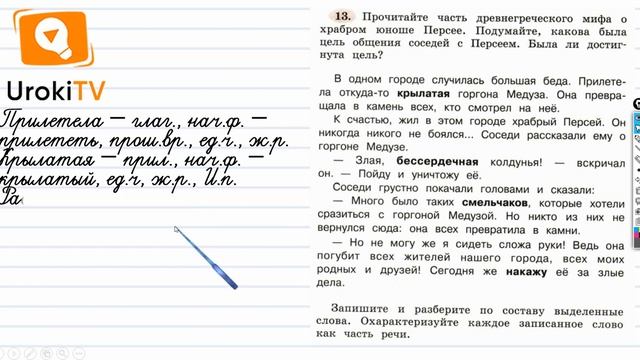 UrokiTV
Прилетела — глаг., нач.ф. —
прилететь, прош.вр., ед.ч., ж.р.
Крылатая — прил., нач.ф. —
крылатый, ед.ч, ж.р., И.п.
Ра
13. Прочитайте часть древнегреческого мифа о
храбром юноше Персее. Подумайте, какова была
цель общения соседей с Персеем. Была ли достиг-
нута цель?
В одном городе случилась большая беда. Прилете-
ла откуда-то крылатая горгона Медуза. Она превра-
щала в камень всех, кто смотрел на неё.
К счастью, жил в этом городе храбрый Персей. Он
никогда никого не боялся... Соседи рассказали ему о
горгоне Медузе.
— Злая, бессердечная колдунья! — вскричал
он. — Пойду и уничтожу её.
Соседи грустно покачали головами и сказали:
— Много было таких смельчаков, которые хотели
сразиться с горгоной Медузой. Но никто из них не
вернулся сюда: она всех превратила в камни.
— Но не могу же я сидеть сложа руки! Ведь она
погубит всех жителей нашего города, всех моих
родных и друзей! Сегодня же накажу её за злые
дела.
Запишите и разберите по составу выделенные
слова. Охарактеризуйте каждое записанное слово
как часть речи.